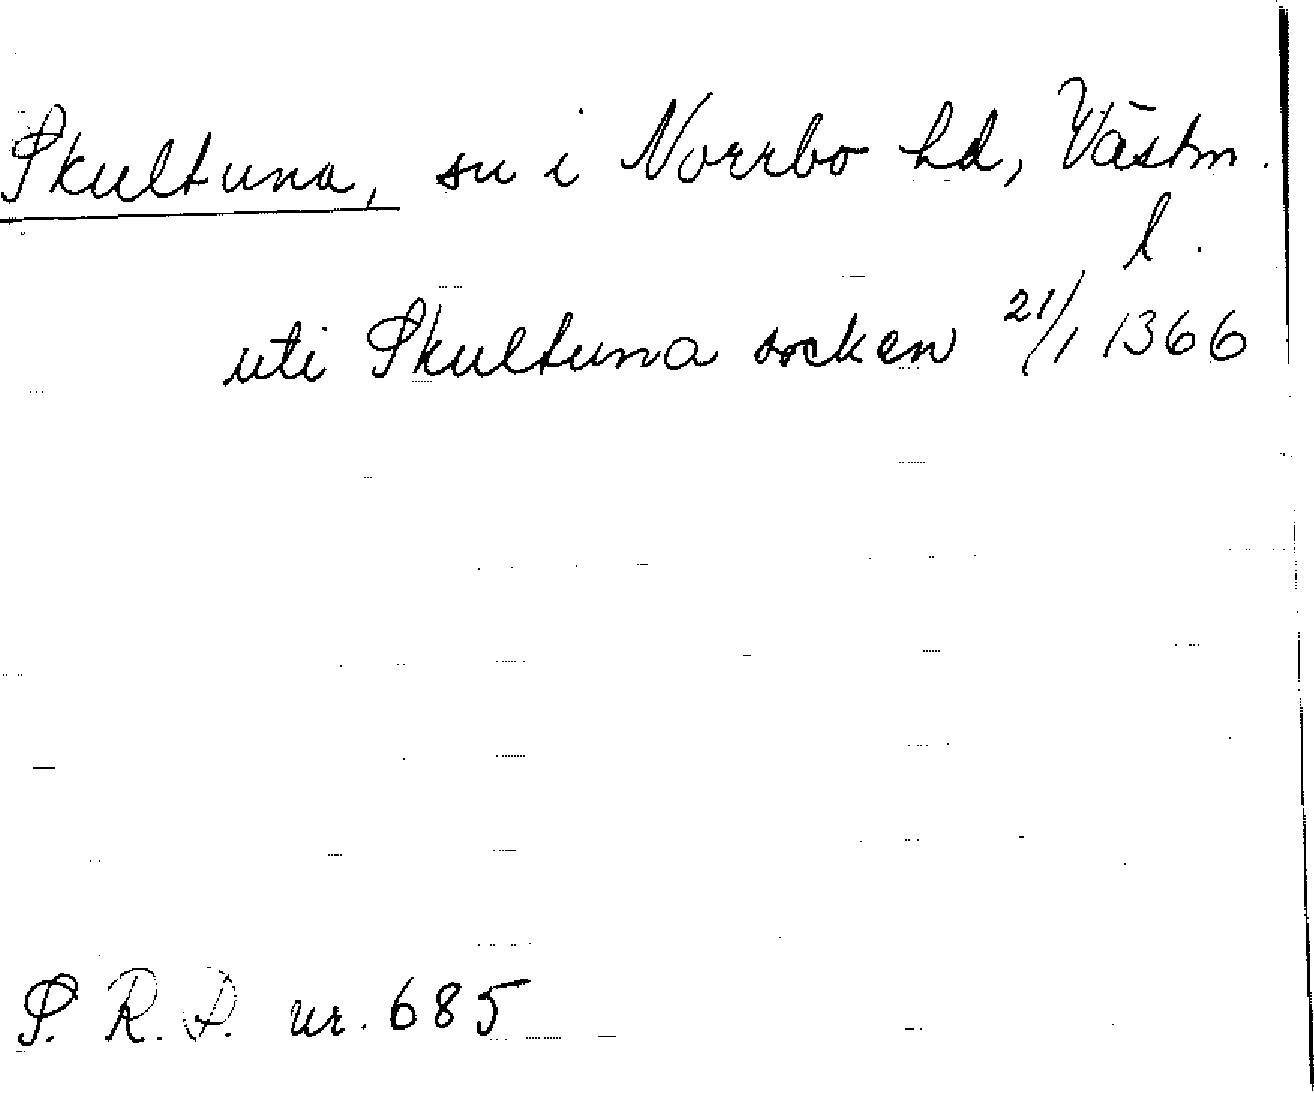 Skultuna, sn i Norrbo hd, Västm.
l.
uti Skultuna socken 21/1 1366
S. R. P. nr. 685